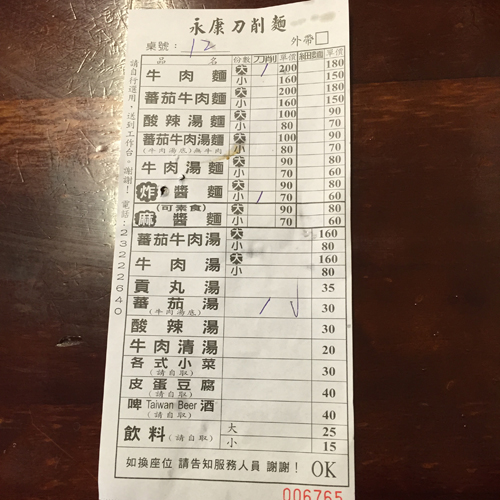 永康刀削麵
桌號: 12 外帶
品名 份數 刀削 單價 細麵 單價
牛肉麵 大 / 200 180
小 160 150
蕃茄牛肉麵 大 200 180
小 160 150
酸辣湯麵 大 100 90
小 80 70
蕃茄牛肉湯麵 大 100 90
(牛肉湯底)無牛肉 小 80 70
牛肉湯麵 大 90 80
小 70 60
炸醬麵 大 90 80
小 / 70 60
(可素食)
麻醬麵 大 90 80
小 70 60
蕃茄牛肉湯 大 160
小 80
牛肉湯 大 160
小 80
貢丸湯 35
蕃茄湯 / 30
(牛肉湯底)
酸辣湯 30
牛肉清湯 20
各式小菜 30
(請自取)
皮蛋豆腐 40
(請自取)
啤Taiwan Beer酒 40
(請自取)
飲料(請自取) 大 25
小 15
如換座位 請告知服務人員 謝謝! OK
006765
請自行選用,送到工作台,謝謝!電話:23222640